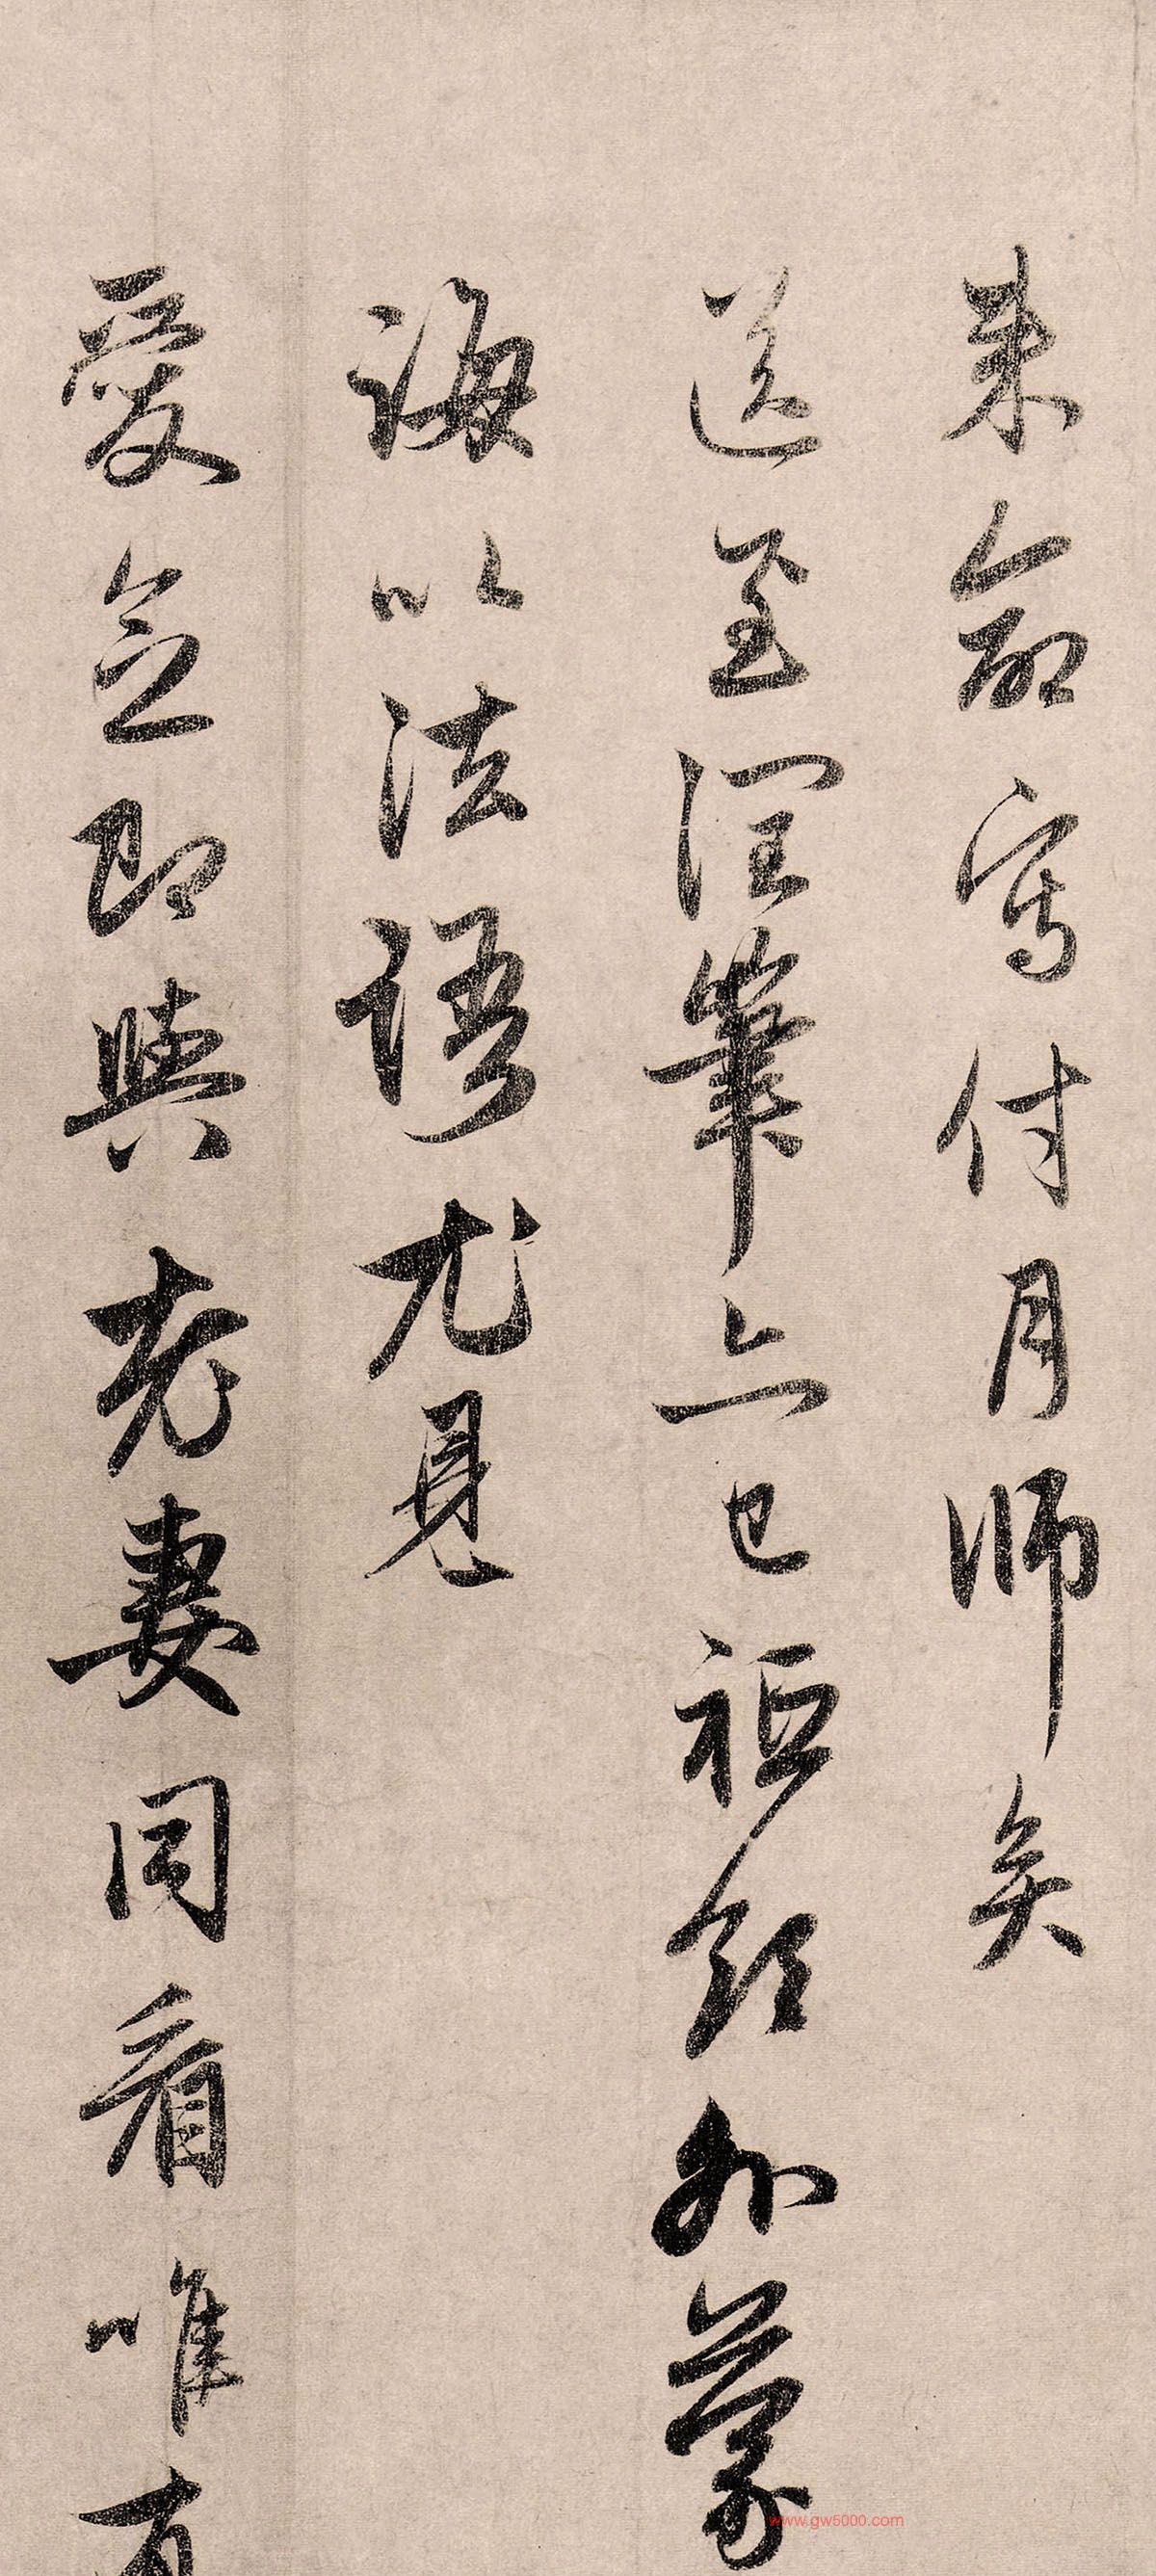 来命写付月师矣
送至润笔亦已祗领外蒙
诲以法语尤见
爱念即与老妻同看唯有
www.gw5000.com